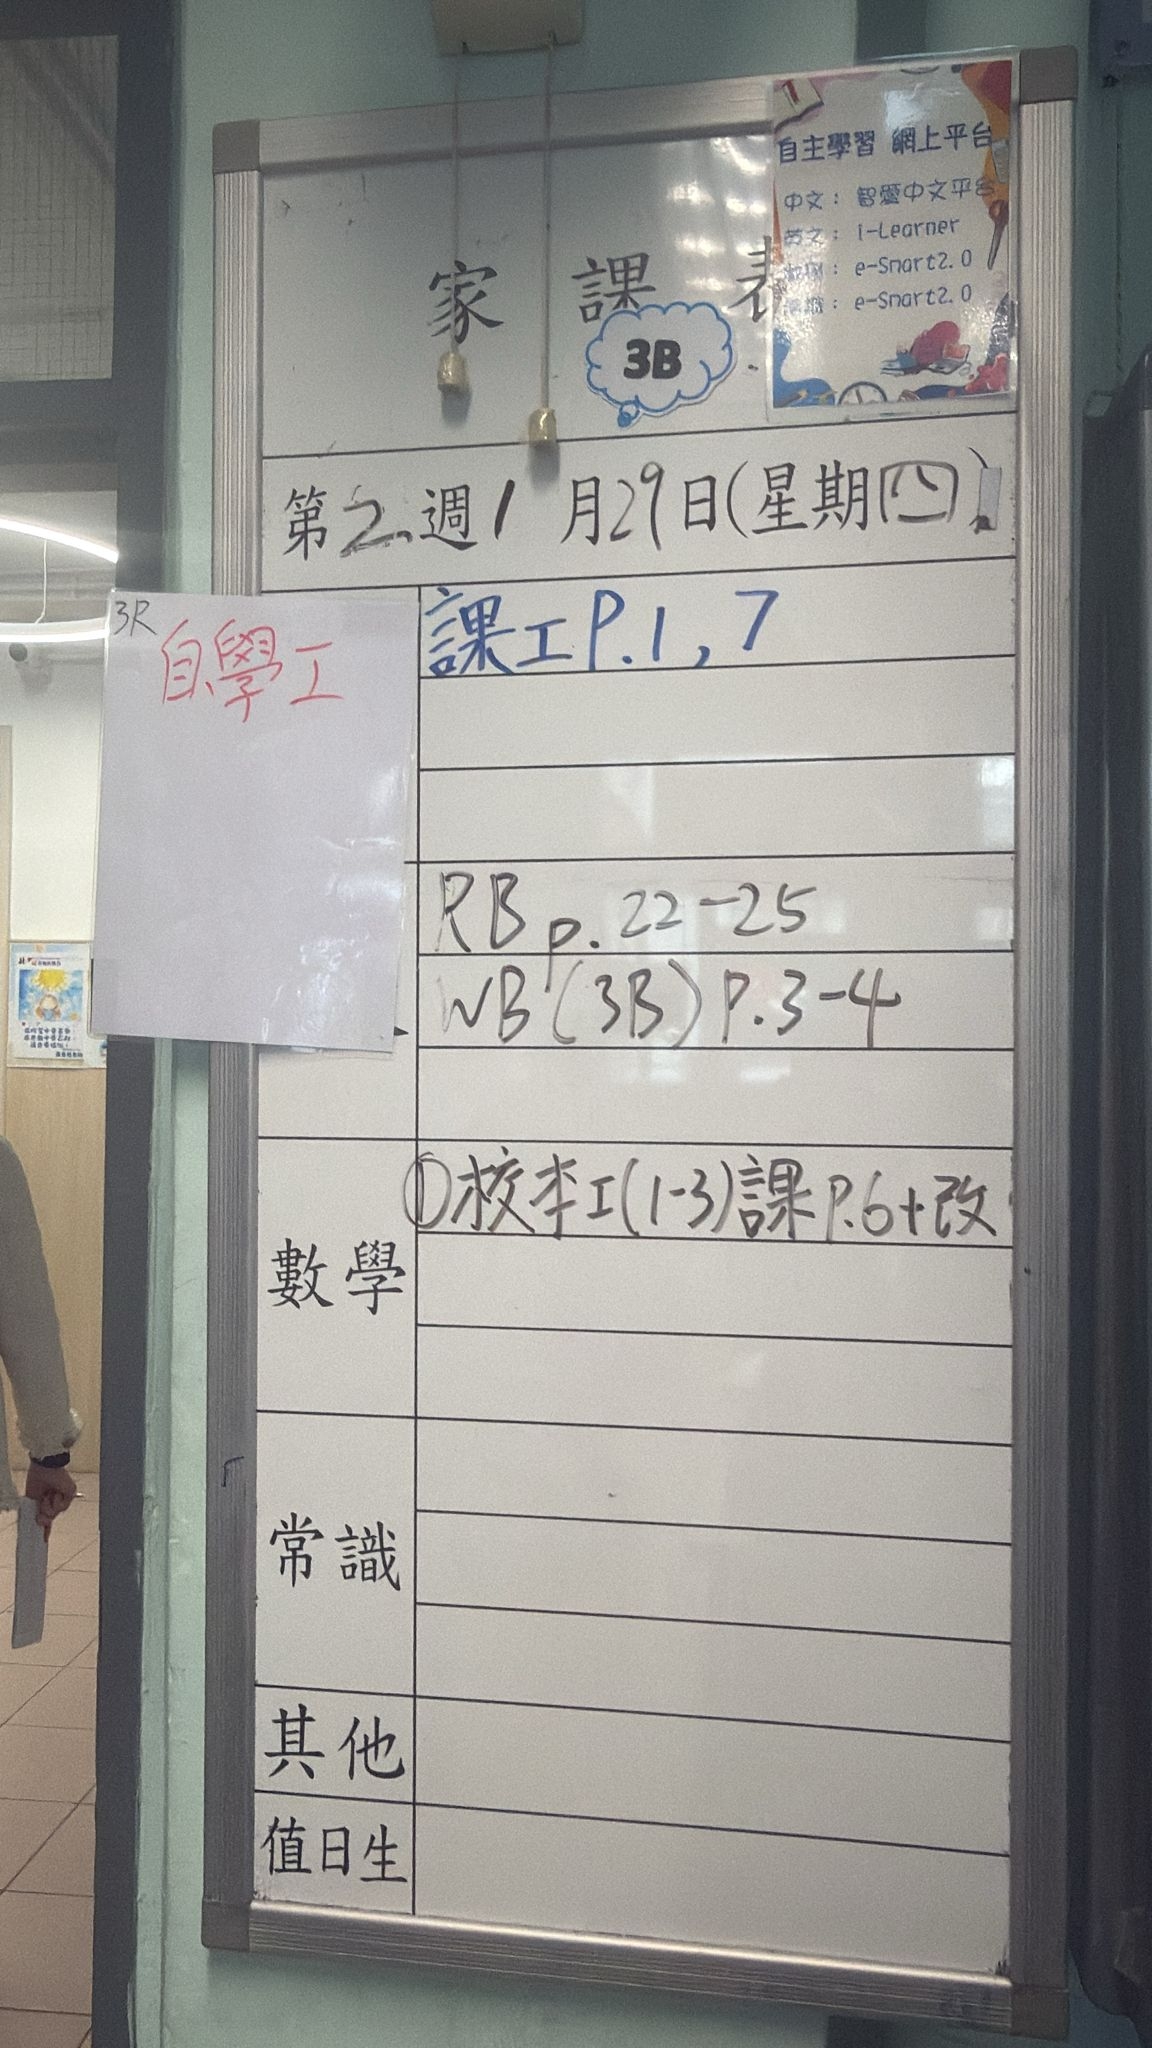 自主學習 網上平台
中文： 智愛中文平台
英文： i-Learner
： e-Smart2.0
： e-Smart2.0
家 課 表
3B
第2週1月29日(星期四)
3R
自學工
課工P.1, 7
RB p. 22-25
WB (3B) P.3-4
數學
①校本工(1-3)課P.6+改
常識
其他
值日生